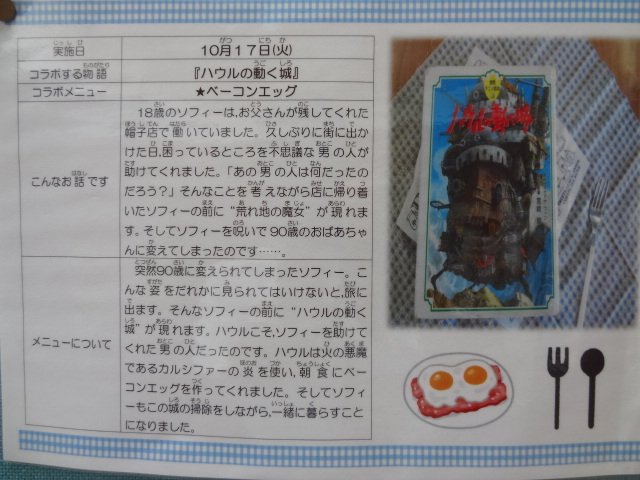 実施日 10月17日(火)
コラボする物語 『ハウルの動く城』
コラボメニュー ★ベーコンエッグ
こんなお話です
18歳のソフィーは、お父さんが残してくれた
帽子店で働いていました。久しぶりに街に出か
けた日、困っているところを不思議な男の人が
助けてくれました。「あの男の人は何だったの
だろう？」そんなことを考えながら店に帰り着
いたソフィーの前に“荒れ地の魔女”が現れま
す。そしてソフィーを呪いで90歳のおばあちゃ
んに変えてしまったのです……。
メニューについて
突然90歳に変えられてしまったソフィー。こ
んな姿をだれかに見られてはいけないと、旅に
出ます。そんなソフィーの前に“ハウルの動く
城”が現れます。ハウルこそ、ソフィーを助けて
くれた男の人だったのです。ハウルは火の悪魔
であるカルシファーの炎を使い、朝食にベー
コンエッグを作ってくれました。そしてソフィ
ーもこの城の掃除をしながら、一緒に暮らすこと
になりました。
ハウルの動く城